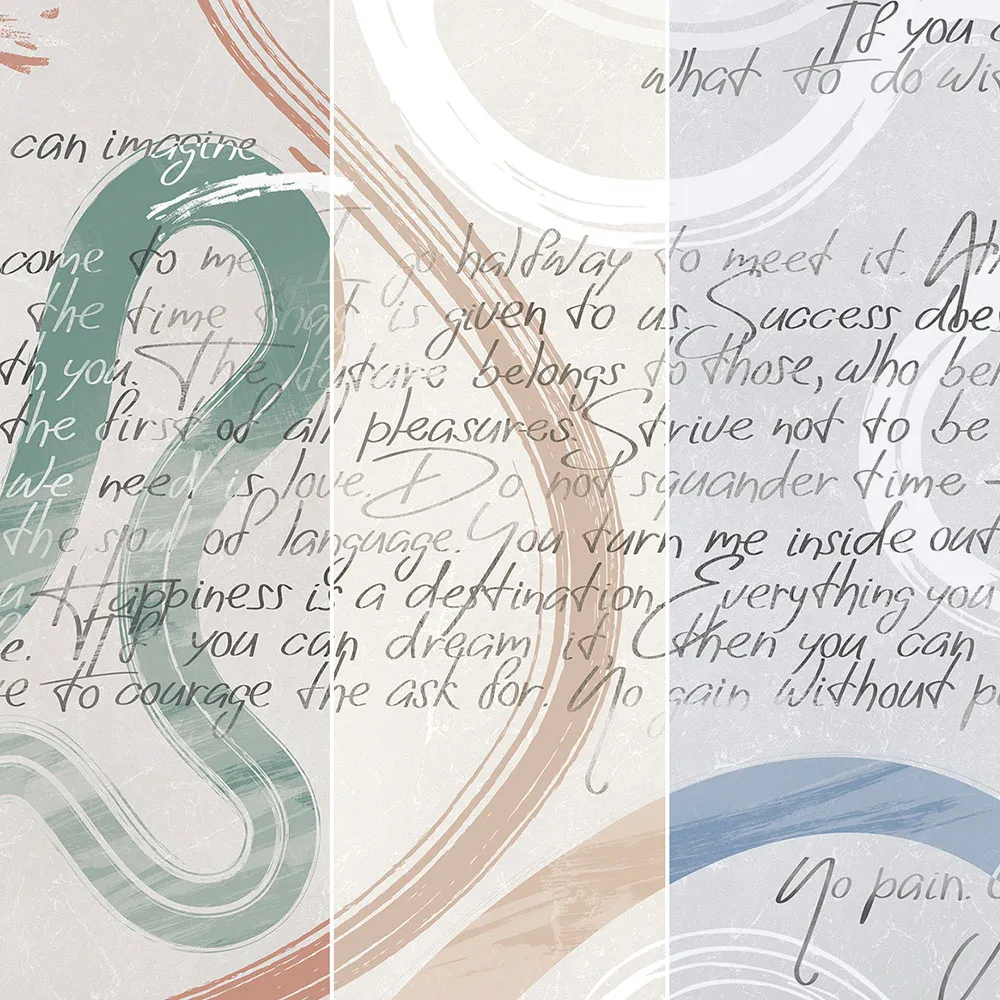 If you
what to do wit
can imagine
come to me I go halfway to meet it. Ath
the time that is given to us. Success does
th you. The future belongs to those, who bel
the first of all pleasures. Strive not to be
we need is love. Do not squander time -
the soul of language. You turn me inside out
Happiness is a destination, Everything you
e. If you can dream it, then you can
e to courage the ask for. No gain without p
No pain.